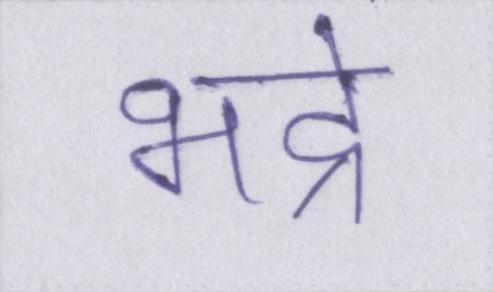 भद्रे